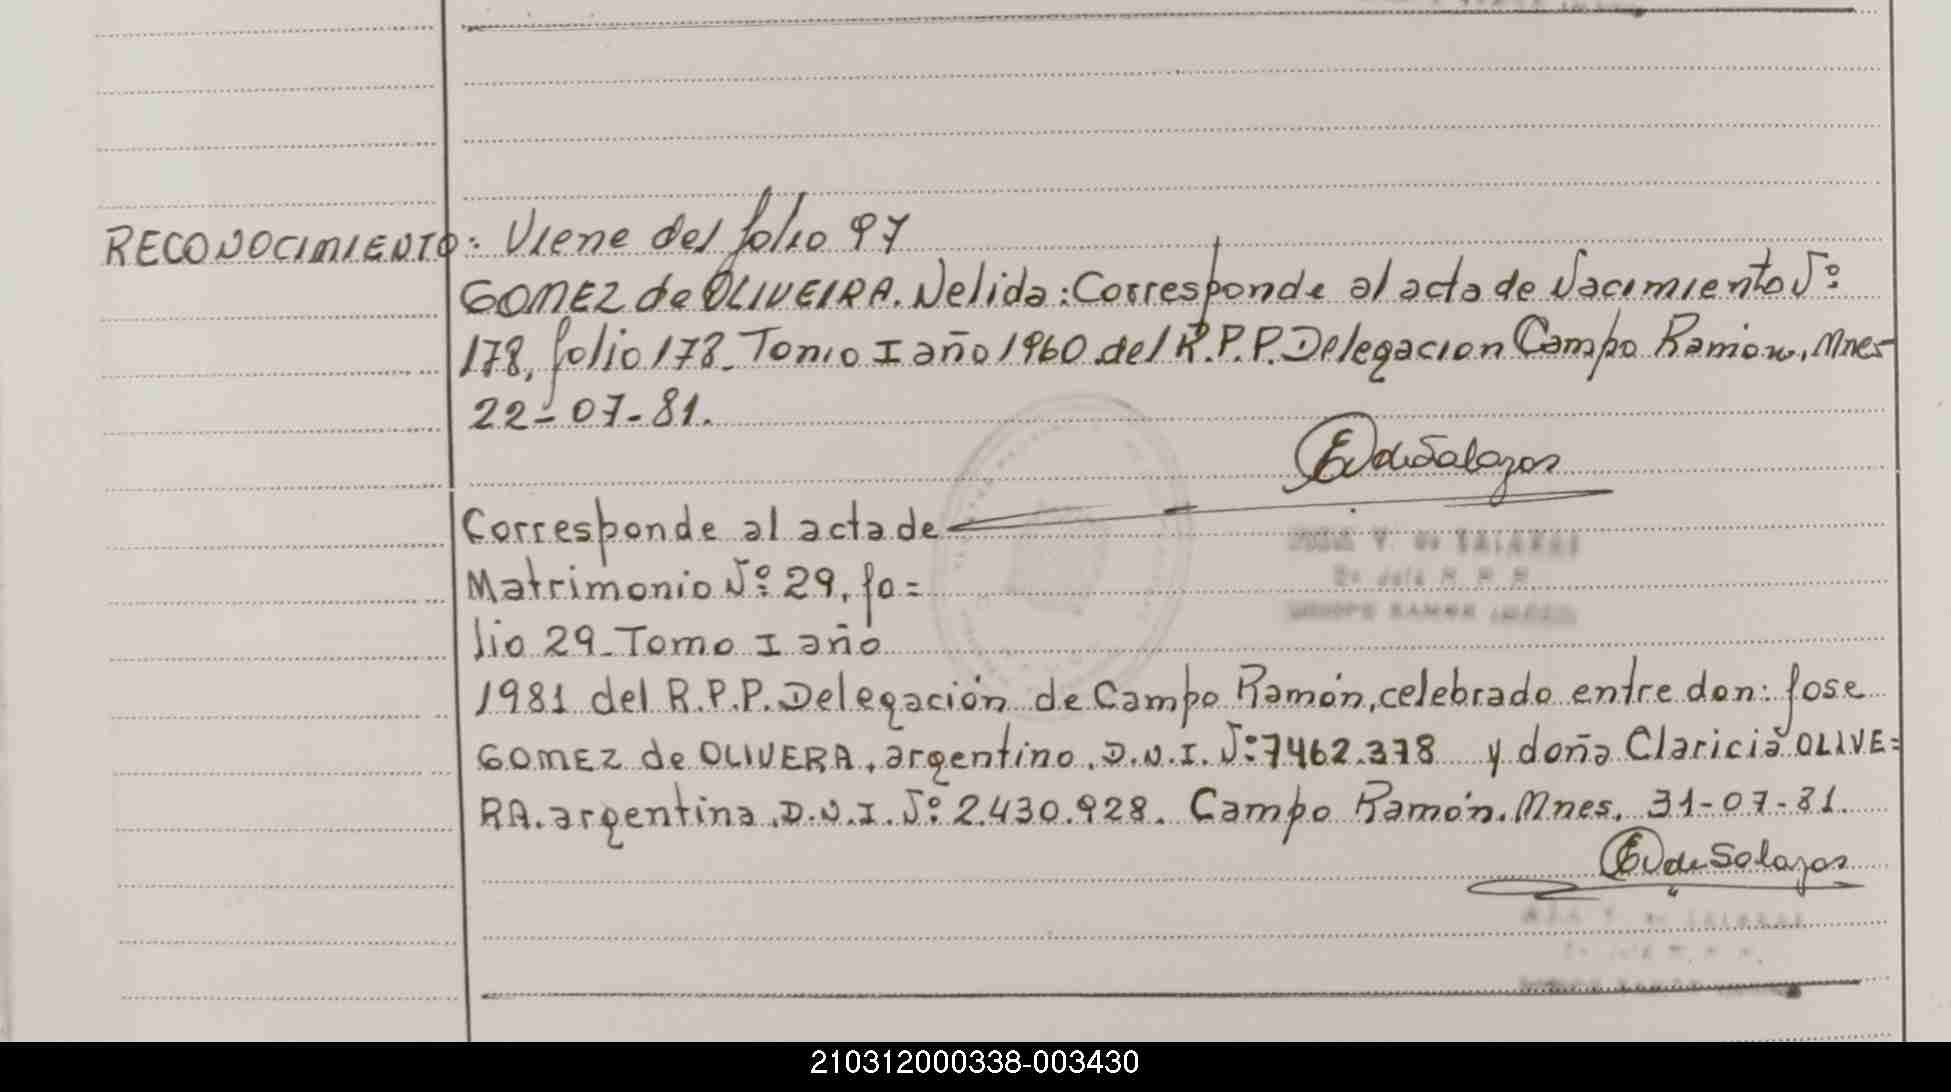 RECONOCIMIENTO: Viene del folio 97
GOMEZ de OLIVEIRA. Nelida: Corresponde al acta de Nacimiento Nº:
178, folio 178. Tomo I año 1960 del R.P.P. Delegacion Campo Ramón, Mnes
22-07-81.
de Salazar
Corresponde al acta de
Matrimonio Nº 29, fo=
lio 29. Tomo I año
1981 del R.P.P. Delegación de Campo Ramón, celebrado entre don: Jose
GOMEZ de OLIVERA, argentino, D.N.I. Nº 7462.378 y doña Claricia OLIVE=
RA. argentina, D.N.I. Nº 2.430.928. Campo Ramón. Mnes. 31-07-81.
de Salazar
210312000338-003430